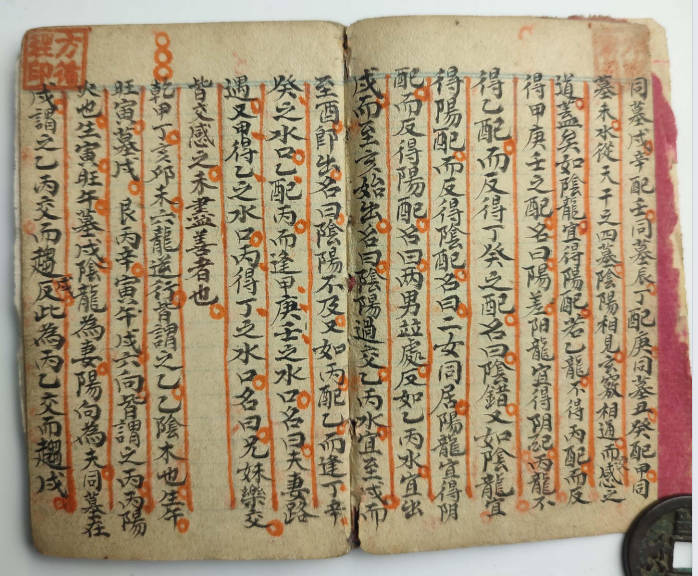 同墓戌辛配壬同墓辰丁配庚同墓丑癸配甲同
墓未水從天干之四墓陰陽相見玄竅相通而感之
道蓋矣如陰龍宜得陽配若乙龍不得丙配而反
得甲庚壬之配名曰陽差阳龍宜得阴配丙龍不
得乙配而反得丁癸之配名曰陰錯又如陰龍宜
得陽配而反得陰配名曰二女同居陽龍宜得阴
配而反得陽配名曰兩男並處反如乙丙水宜出
戌而至亥始出名曰陰陽過交乙丙水宜至戌而
至酉卽出名曰陰陽不及又如丙配乙而逢丁辛
癸之水口乙配丙而逢甲庚壬之水口名曰夫妻路
遇又甲得乙之水口丙得丁之水口名曰兄妹樂交
皆交感之未盡善者也
乾甲丁亥卯未六龍逆行皆謂之乙乙陰木也生午
旺寅墓戌 艮丙辛寅午戌六向皆謂之丙丙陽
火也生寅旺午墓戌陰龍為妻陽向為夫同墓在
戌謂之乙丙交而趨戌反此為丙乙交而趨戌